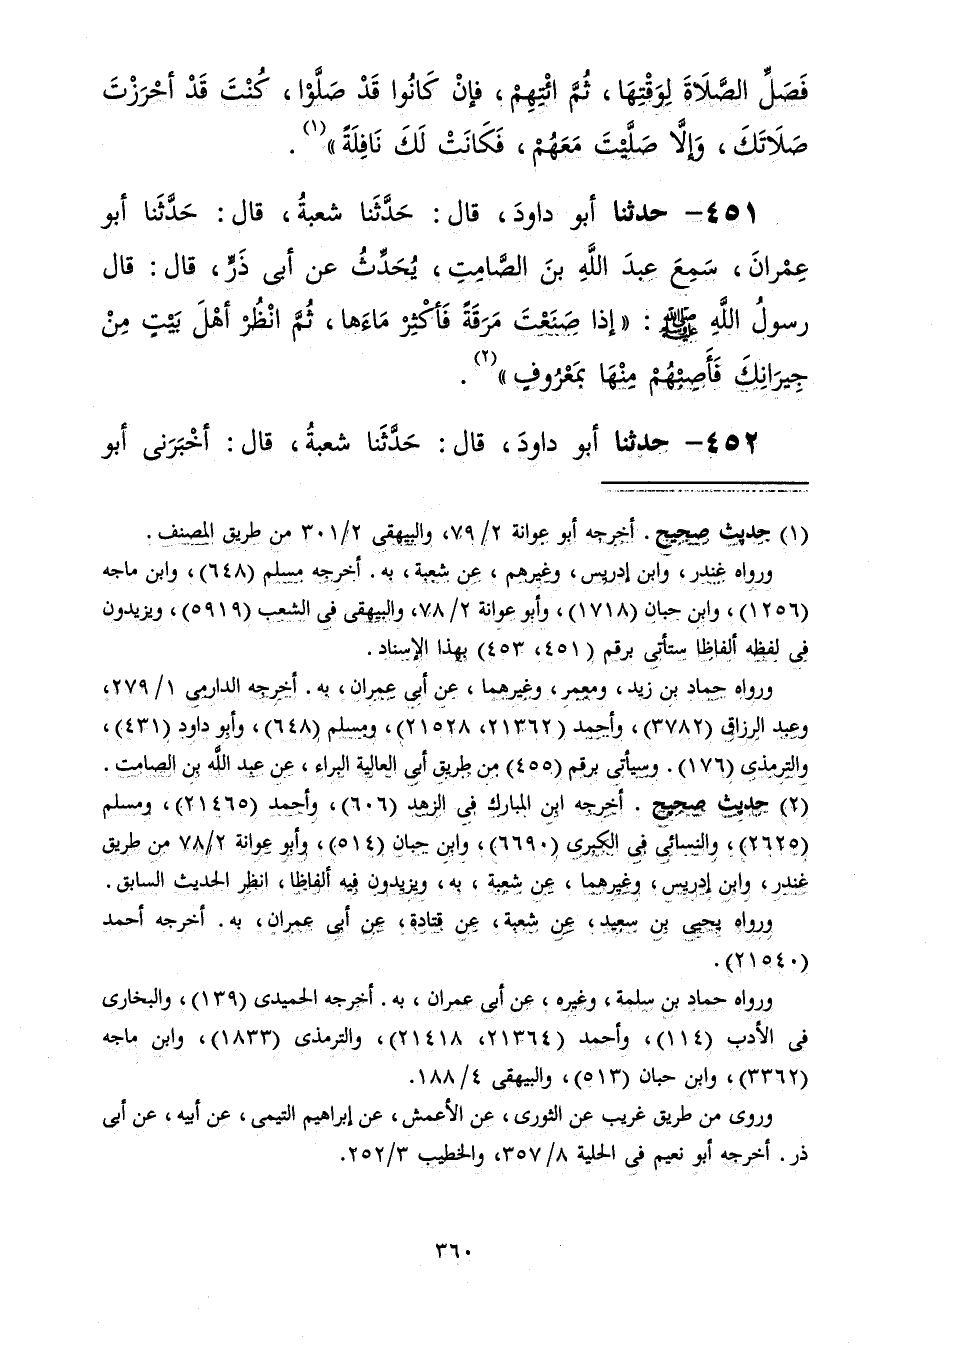 فَصَلِّ الصَّلَاةَ لِوَقْتِهَا، ثُمَّ ائْتِهِمْ، فإنْ كَانُوا قَدْ صَلَّوْا، كُنْتَ قَدْ أحْرَزْتَ
صَلَاتَكَ، وَإلَّا صَلَّيْتَ مَعَهُمْ، فَكَانَتْ لَكَ نَافِلَةً»(١).
٤٥١- حدثنا أبو داودَ، قال: حَدَّثَنا شعبةُ، قال: حَدَّثَنا أبو
عِمْرانَ، سَمِعَ عبدَ اللَّهِ بنَ الصَّامِتِ، يُحَدِّثُ عن أبى ذَرٍّ، قال: قال
رسولُ اللَّهِ ﷺ: «إذا صَنَعْتَ مَرَقَةً فَأكْثِرْ مَاءَها، ثُمَّ انْظُرْ أهْلَ بَيْتٍ مِنْ
جِيرَانِكَ فَأَصِبْهُمْ مِنْهَا بمَعْرُوفٍ»(٢).
٤٥٢- حدثنا أبو داودَ، قال: حَدَّثَنا شعبةُ، قال: أخْبَرَنى أبو
(١) حديث صحيح. أخرجه أبو عوانة ٢/ ٧٩، والبيهقى ٢/ ٣٠١ من طريق المصنف.
ورواه غندر، وابن إدريس، وغيرهم، عن شعبة، به. أخرجه مسلم (٦٤٨)، وابن ماجه
(١٢٥٦)، وابن حبان (١٧١٨)، وأبو عوانة ٢/ ٧٨، والبيهقى فى الشعب (٥٩١٩)، ويزيدون
فى لفظه ألفاظا ستأتى برقم (٤٥١، ٤٥٣) بهذا الإسناد.
ورواه حماد بن زيد، ومعمر، وغيرهما، عن أبى عمران، به. أخرجه الدارمى ١/ ٢٧٩،
وعبد الرزاق (٣٧٨٢)، وأحمد (٢١٣٦٢، ٢١٥٢٨)، ومسلم (٦٤٨)، وأبو داود (٤٣١)،
والترمذى (١٧٦). وسيأتى برقم (٤٥٥) من طريق أبى العالية البراء، عن عبد اللَّه بن الصامت.
(٢) حديث صحيح. أخرجه ابن المبارك فى الزهد (٦٠٦)، وأحمد (٢١٤٦٥)، ومسلم
(٢٦٢٥)، والنسائى فى الكبرى (٦٦٩٠)، وابن حبان (٥١٤)، وأبو عوانة ٢/ ٧٨ من طريق
غندر، وابن إدريس، وغيرهما، عن شعبة، به، ويزيدون فيه ألفاظا، انظر الحديث السابق.
ورواه يحيى بن سعيد، عن شعبة، عن قتادة، عن أبى عمران، به. أخرجه أحمد
(٢١٥٤٠).
ورواه حماد بن سلمة، وغيره، عن أبى عمران، به. أخرجه الحميدى (١٣٩)، والبخارى
فى الأدب (١١٤)، وأحمد (٢١٣٦٤، ٢١٤١٨)، والترمذى (١٨٣٣)، وابن ماجه
(٣٣٦٢)، وابن حبان (٥١٣)، والبيهقى ٤/ ١٨٨.
وروى من طريق غريب عن الثورى، عن الأعمش، عن إبراهيم التيمى، عن أبيه، عن أبى
ذر. أخرجه أبو نعيم فى الحلية ٨/ ٣٥٧، والخطيب ٣/ ٢٥٢.
٣٦٠